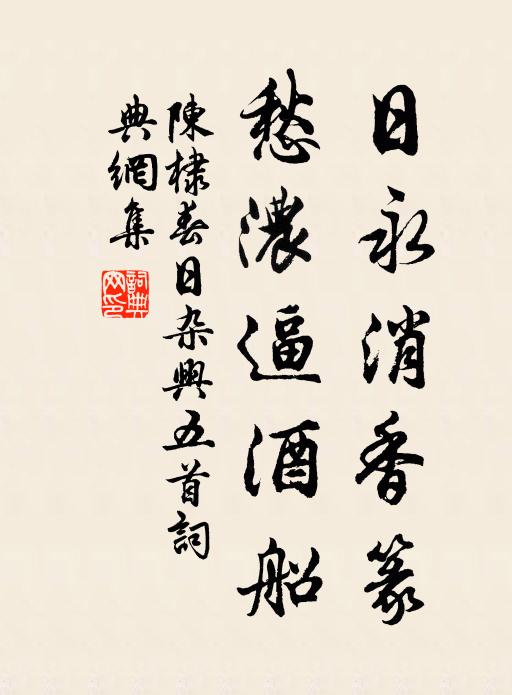 日永消香篆
愁濃逼酒船
陳棣春日杂興五首詞
典網集
詞典網印